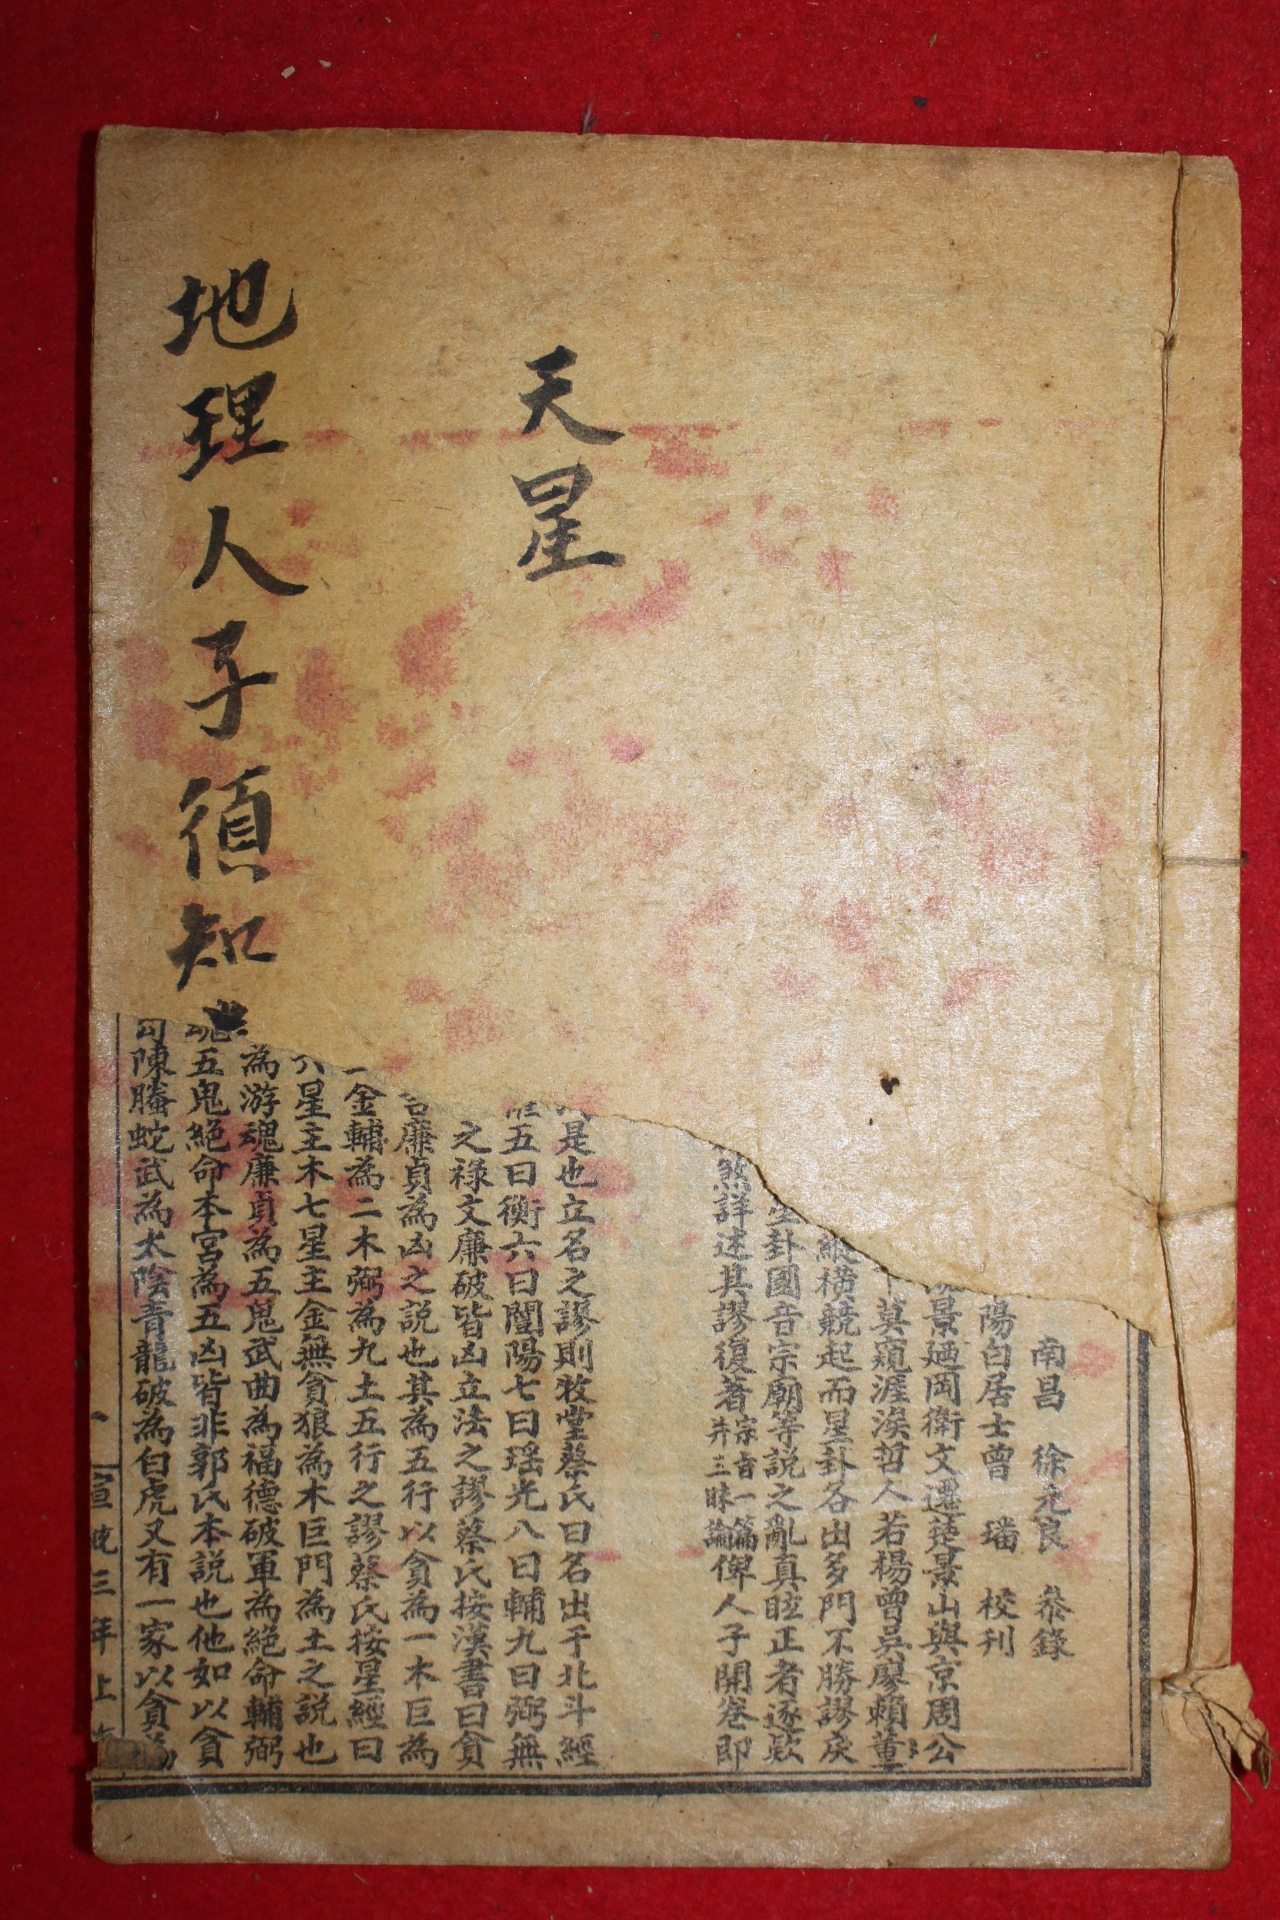 天星
地理人子須知
南昌 徐元良 叅錄
陽白居士曾 璠 校刊
景廼岡衛文遷楚景山與京周公
莫窺涯涘哲人若楊曾吳廖賴董
縱横競起而星卦各出多門不勝謬戾
卦國音宗廟等說之亂真眩正者逐款
煞詳述其謬復著宗旨一篇并三昧論俾人子開卷即
是也立名之謬則牧堂蔡氏曰名出于北斗經
五曰衡六曰闓陽七曰瑶光八曰輔九曰弼無
之祿文廉破皆凶立法之謬蔡氏按漢書曰貪
廉貞為凶之說也其為五行以貪為一木巨為
金輔為二木弼為九土五行之謬蔡氏按星經曰
六星主木七星主金無貪狼為木巨門為土之說也
為游魂廉貞為五鬼武曲為福德破軍為絕命輔弼
魂五鬼絕命本宮為五凶皆非郭氏本說也他如以貪
陳螣蛇武為太陰青龍破為白虎又有一家以貪為
宣統三年上